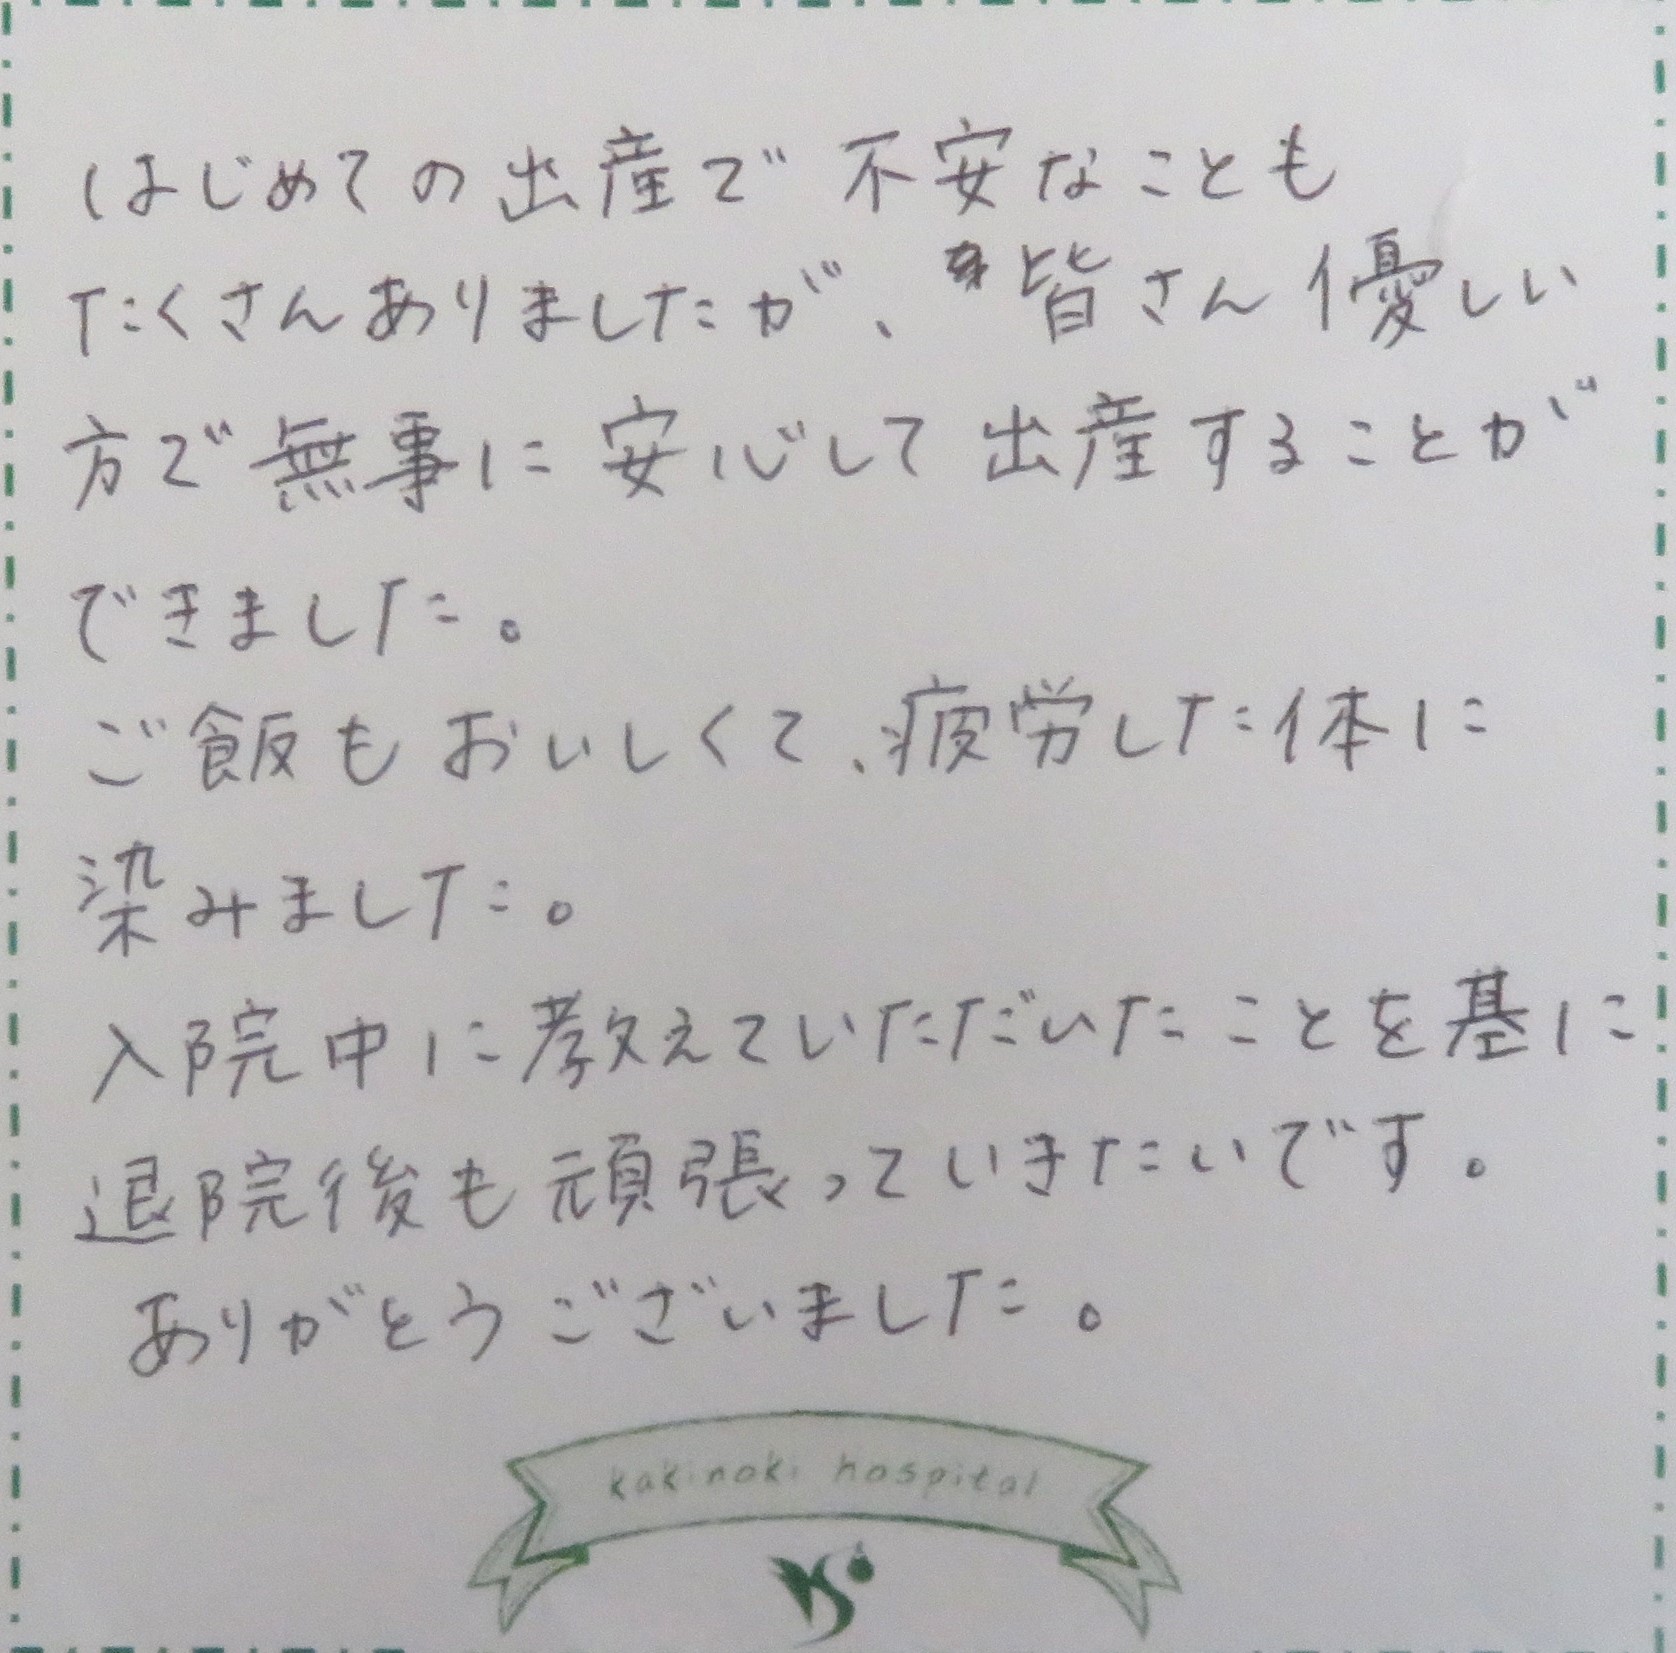 はじめての出産で不安なことも
たくさんありましたが、皆さん優しい
方で無事に安心して出産することが
できました。
ご飯もおいしくて、疲労した体に
染みました。
入院中に教えていただいたことを基に
退院後も頑張っていきたいです。
ありがとうございました。
kakinoki hospital